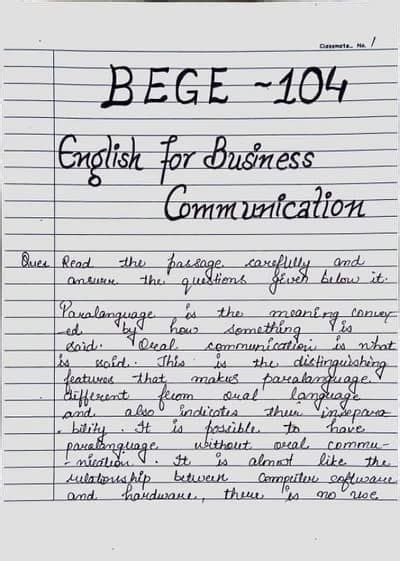 Classmate No. 1
BEGE -104
English for Business
Communication
Ques Read the passage carefully and
answer the questions given below it.
Paralanguage is the meaning convey
-ed by how something is
said. Oral communication is what
is said. This is the distinguishing
features that makes paralanguage
different from oral language
and also indicates their insepara
-bility. It is possible to have
paralanguage without oral commu-
-nication. It is almost like the
relationship between Computer software
and hardware, there is no use